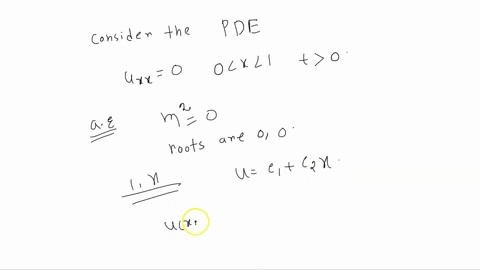 Consider the PDE
uxx = 0 0 < x < 1 t > 0.
a.E m² = 0
roots are 0, 0.
1, x u = c₁ + c₂ x.
u(x,